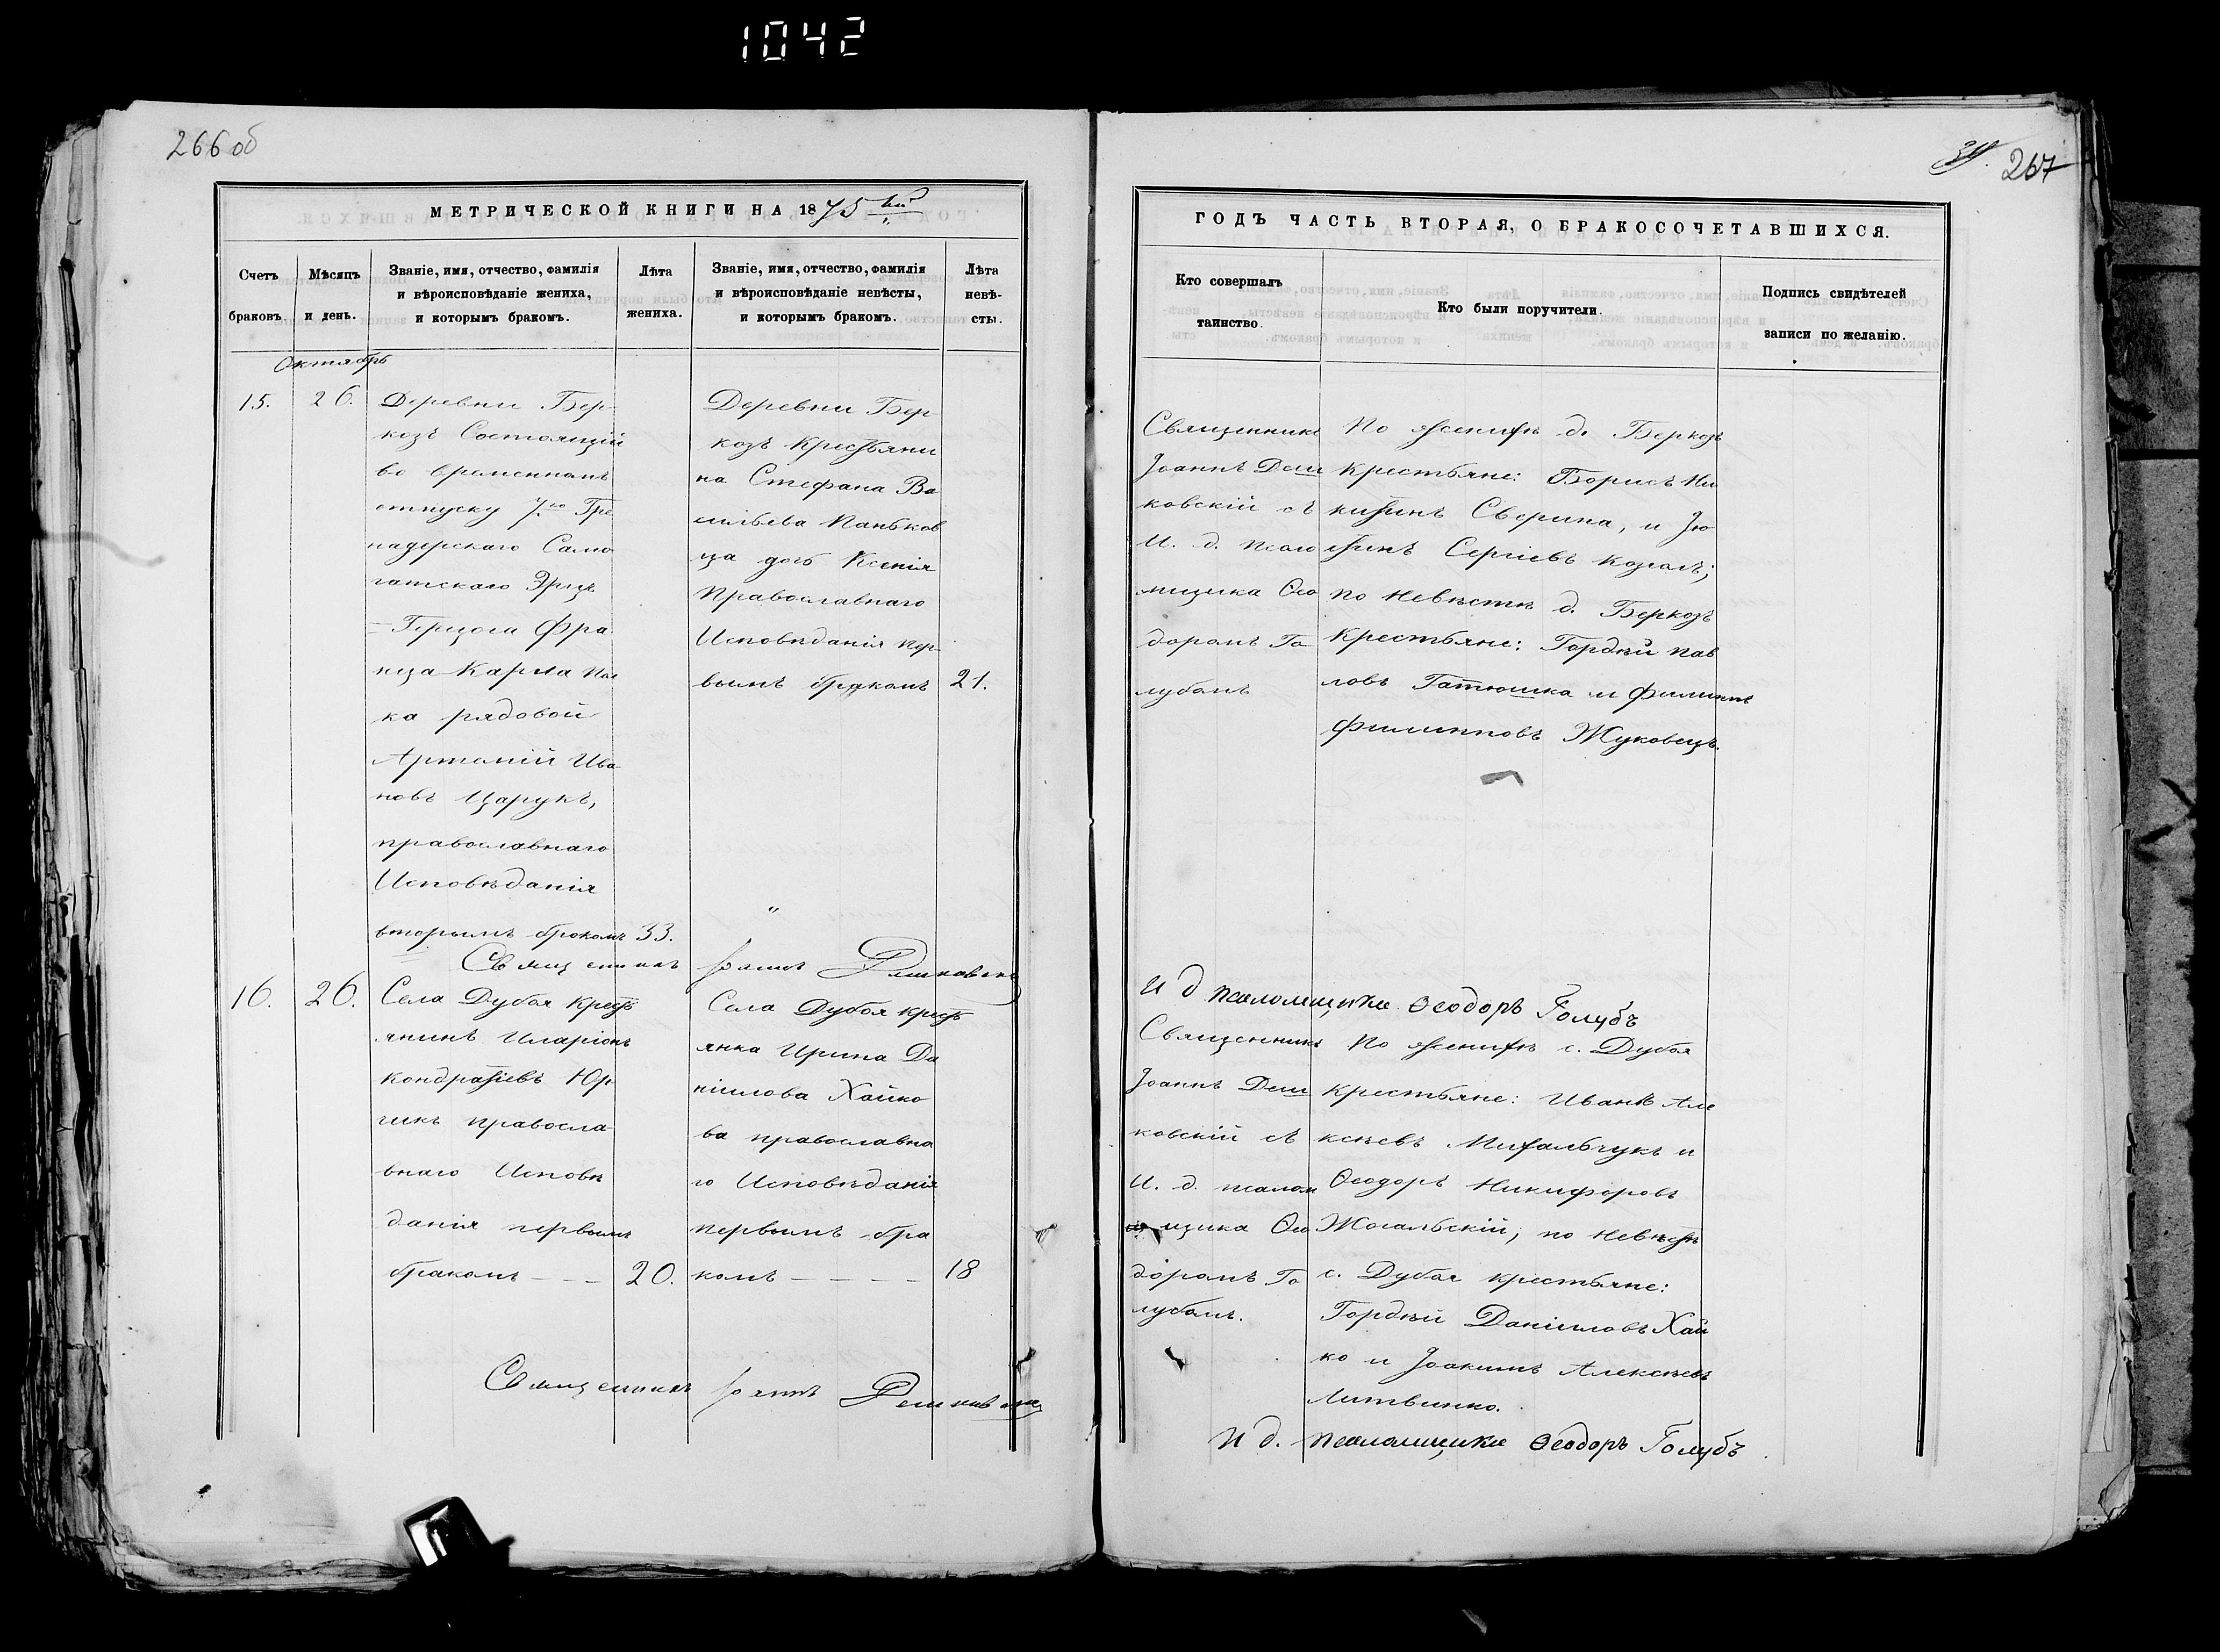 1042
266 об
МЕТРИЧЕСКОЙ КНИГИ НА 1875ый
Счетъ браковъ.
Мѣсяцъ и день.
Званіе, имя, отчество, фамилія
и вѣроисповѣданіе жениха,
и которымъ бракомъ.
Лѣта
жениха.
Званіе, имя, отчество, фамилія
и вѣроисповѣданіе невѣсты,
и которымъ бракомъ.
Лѣта
невѣ-
сты.
Октябрь
15.
26.
Деревни Бер-
козъ Состоящій
во временномъ
отпуску 7го Гре
надерскаго Само
гитскаго Эрцъ
=Герцога Фра
нца-Карла Пол
ка рядовой
Артемій Ива-
новъ Царукъ,
православнаго
Исповѣданія
вторымъ бракомъ
33.
Деревни Бер-
козъ Крестьяни
на Стефана Ва
сильева Паньков
ца дочь Ксенія
Православнаго
Исповѣданія пер-
вымъ бракомъ
21.
Священникъ Іоаннъ Дешковскій
16.
26.
Села Дубоя Крест
янинъ Иларіонъ
Кондратіевъ Юр
чикъ правосла-
внаго Исповѣ
данія первымъ
бракомъ - - -
20.
Села Дубоя крест
янка Ирина Да
ніилова Хайко
ва православна
го Исповѣданія
первымъ бра
комъ - - - -
18
Священникъ Іоаннъ Дешковскій
267
ГОДЪ ЧАСТЬ ВТОРАЯ, О БРАКОСОЧЕТАВШИХСЯ.
Кто совершалъ
таинство.
Кто были поручители.
Подпись свидѣтелей
записи по желанію.
Священникъ
Іоаннъ Деш
ковскій съ
И. д. псало
мщика Ѳео
доромъ Го
лубомъ
По женихѣ д. Беркозъ
крестьяне: Борисъ Ни
китинъ Сверина, и Ію
стинъ Сергіевъ Козолъ;
по Невѣстѣ д. Беркозъ
Крестьяне: Гордѣй Пав
ловъ Гатюшка и Филиппъ
Филипповъ Жуковецъ.
И д псаломщика Ѳеодоръ Голубъ
Священникъ
Іоаннъ Деш
ковскій съ
И. д. псалом
щика Ѳео
доромъ Го
лубомъ.
По женихѣ с. Дубоя
крестьяне: Иванъ Але
ксѣевъ Михальчукъ и
Ѳеодоръ Никифоровъ
Жогальскій; по Невѣстѣ
с. Дубоя крестьяне:
Гордѣй Даніиловъ Хай
ко и Іоакимъ Алексѣевъ
Литвинко.
И д. псаломщика Ѳеодоръ Голубъ